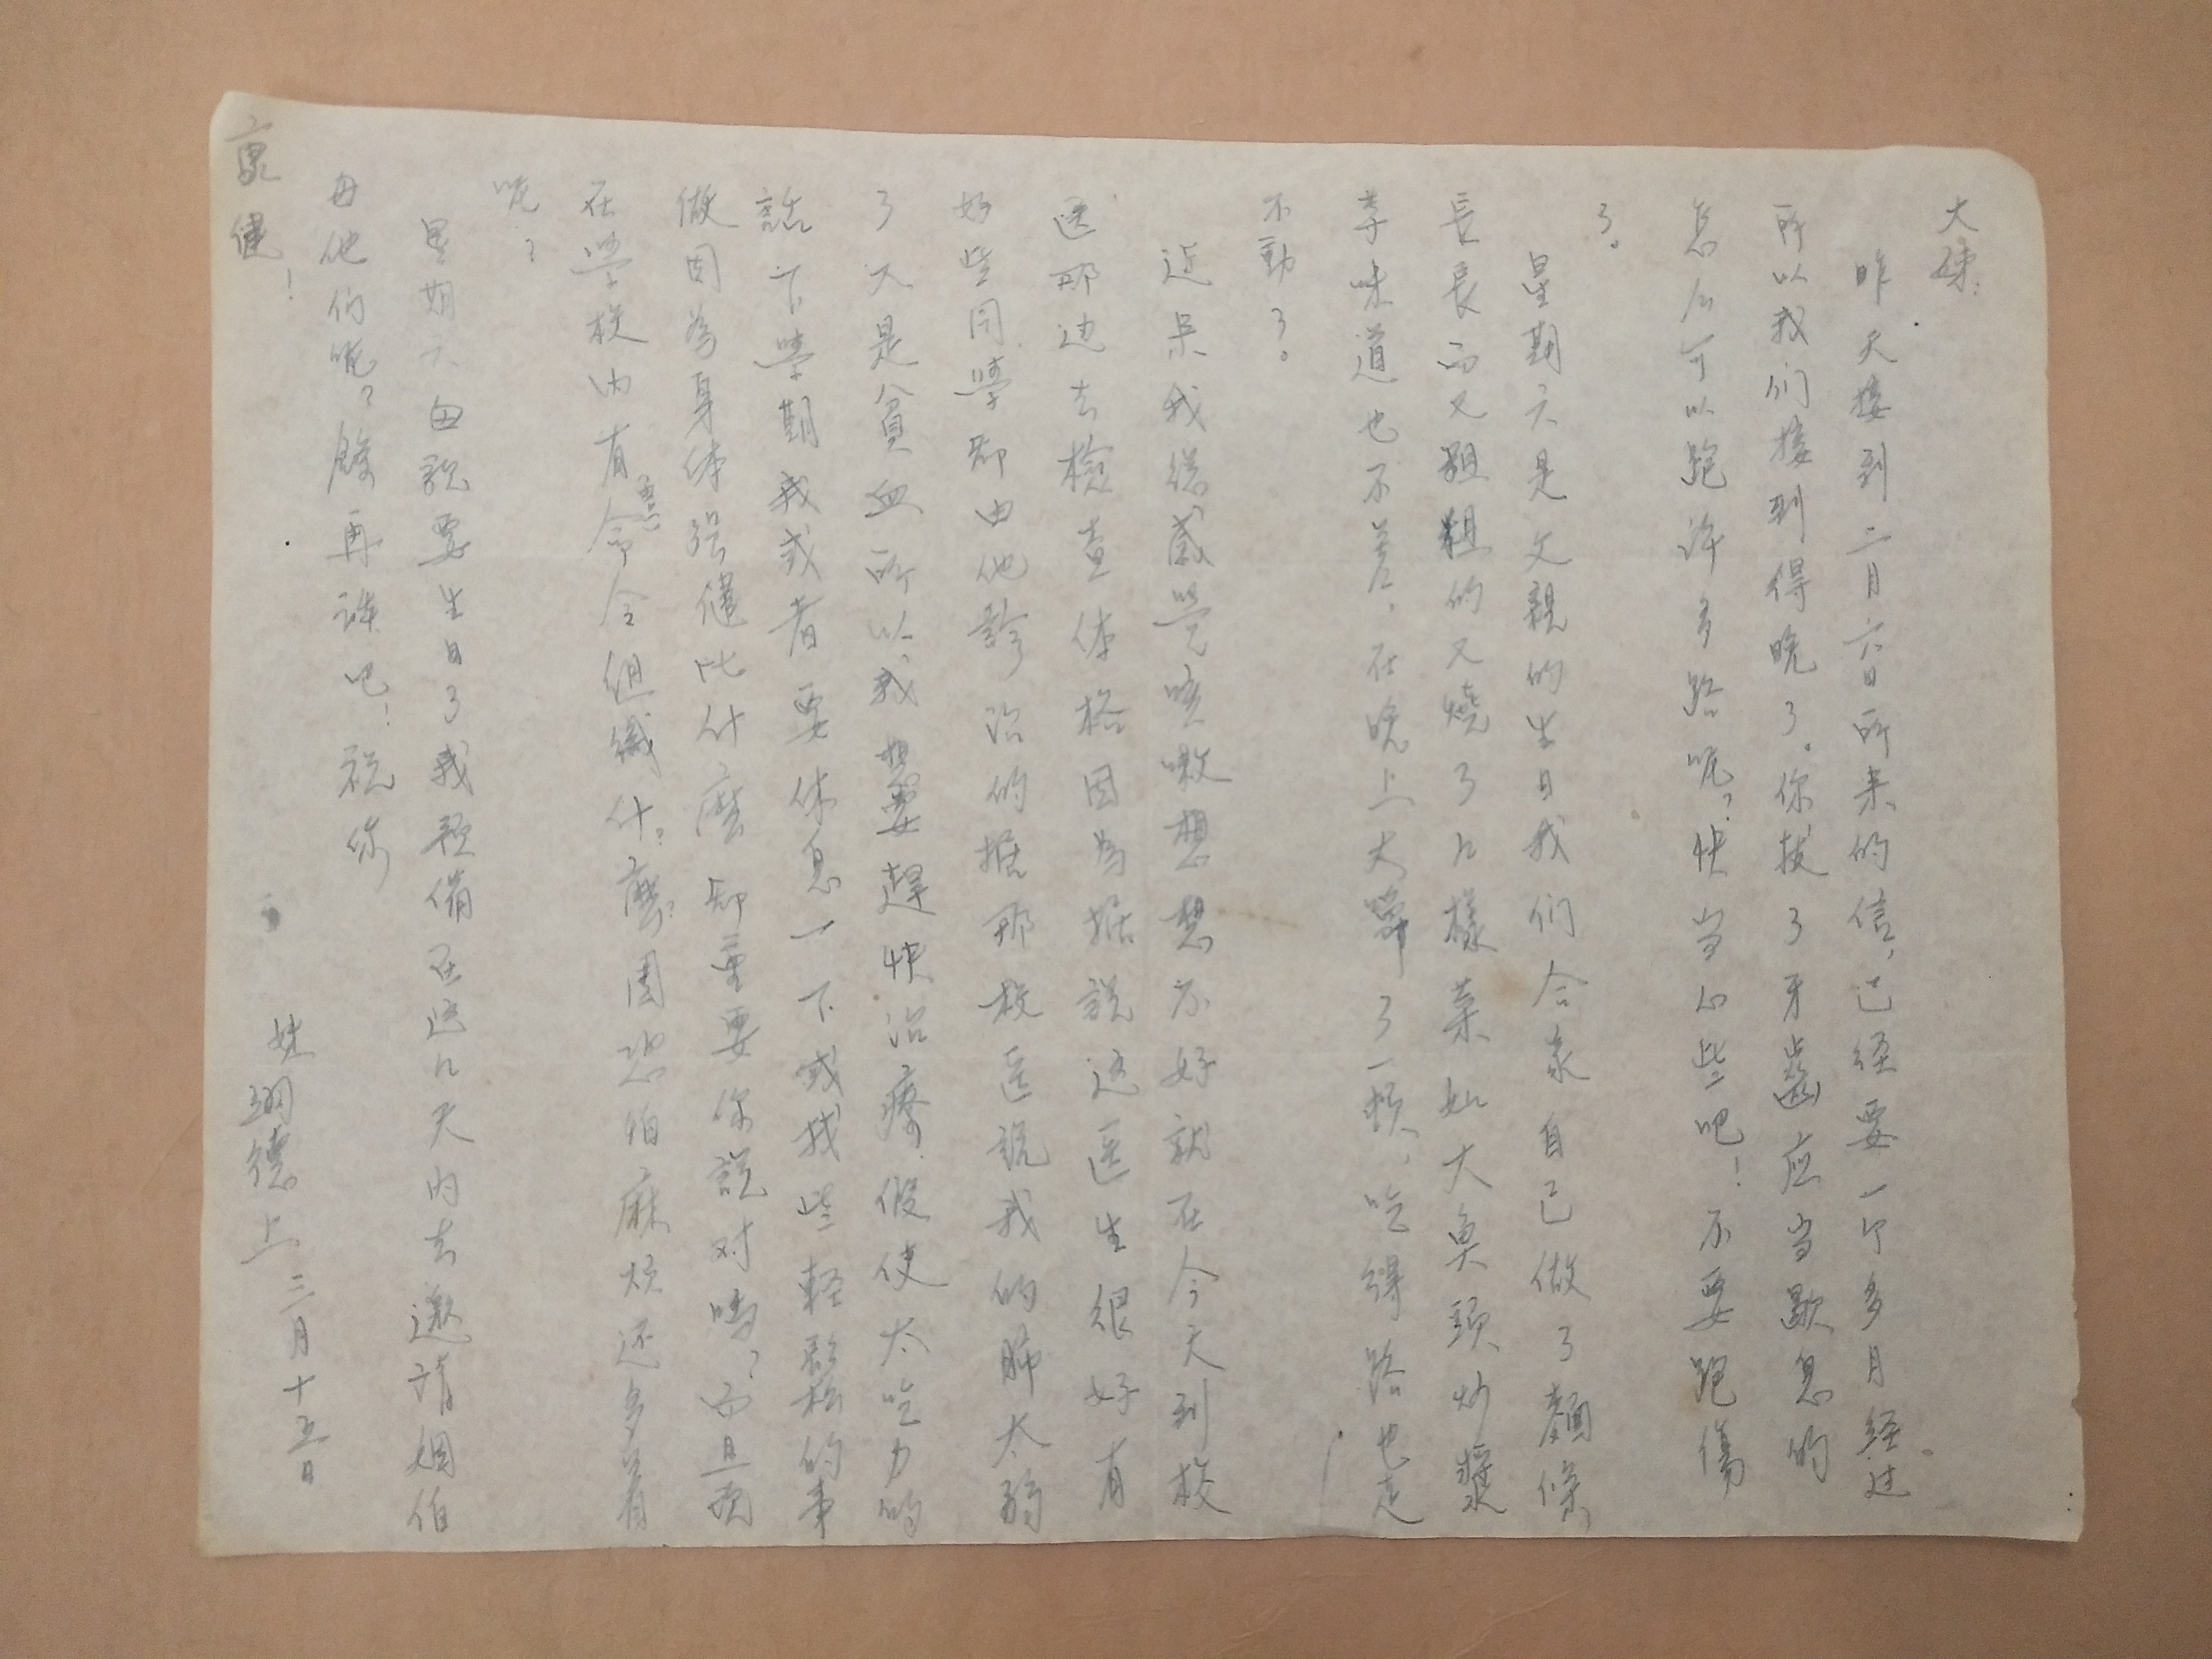 大妹：
昨天接到二月六日所来的信，已经要一个多月经过
所以我们接到得晚了。你拔了牙齒应当歇息的
怎么可以跑许多路呢？快当心些吧！不要跑傷
了。
星期六是父親的生日我们合家自己做了麵條
長長而又粗粗的又燒了几樣菜如大魚頭炒醬
等味道也不差，在晚上大嚼了一頓，吃得路也走
不動了。
近来我總感覺咳嗽想想不好就在今天到校
医那边去檢查体格因為据説这医生很好有
好些同學都由他診治的据那校医説我的肺太弱
了又是貧血所以我想要趕快治療，假使太吃力的
話下學期我或者要休息一下或找些輕鬆的事
做因為身体强健比什麼都重要你説对嗎？而且现
在學校内有意令令組織什麼团恐怕麻烦还多着
呢？
星期六母説要生日了我預備在这几天内去邀请姻伯
母他们呢？餘再谈吧！祝你
康健！
妹 德上
三月十五日